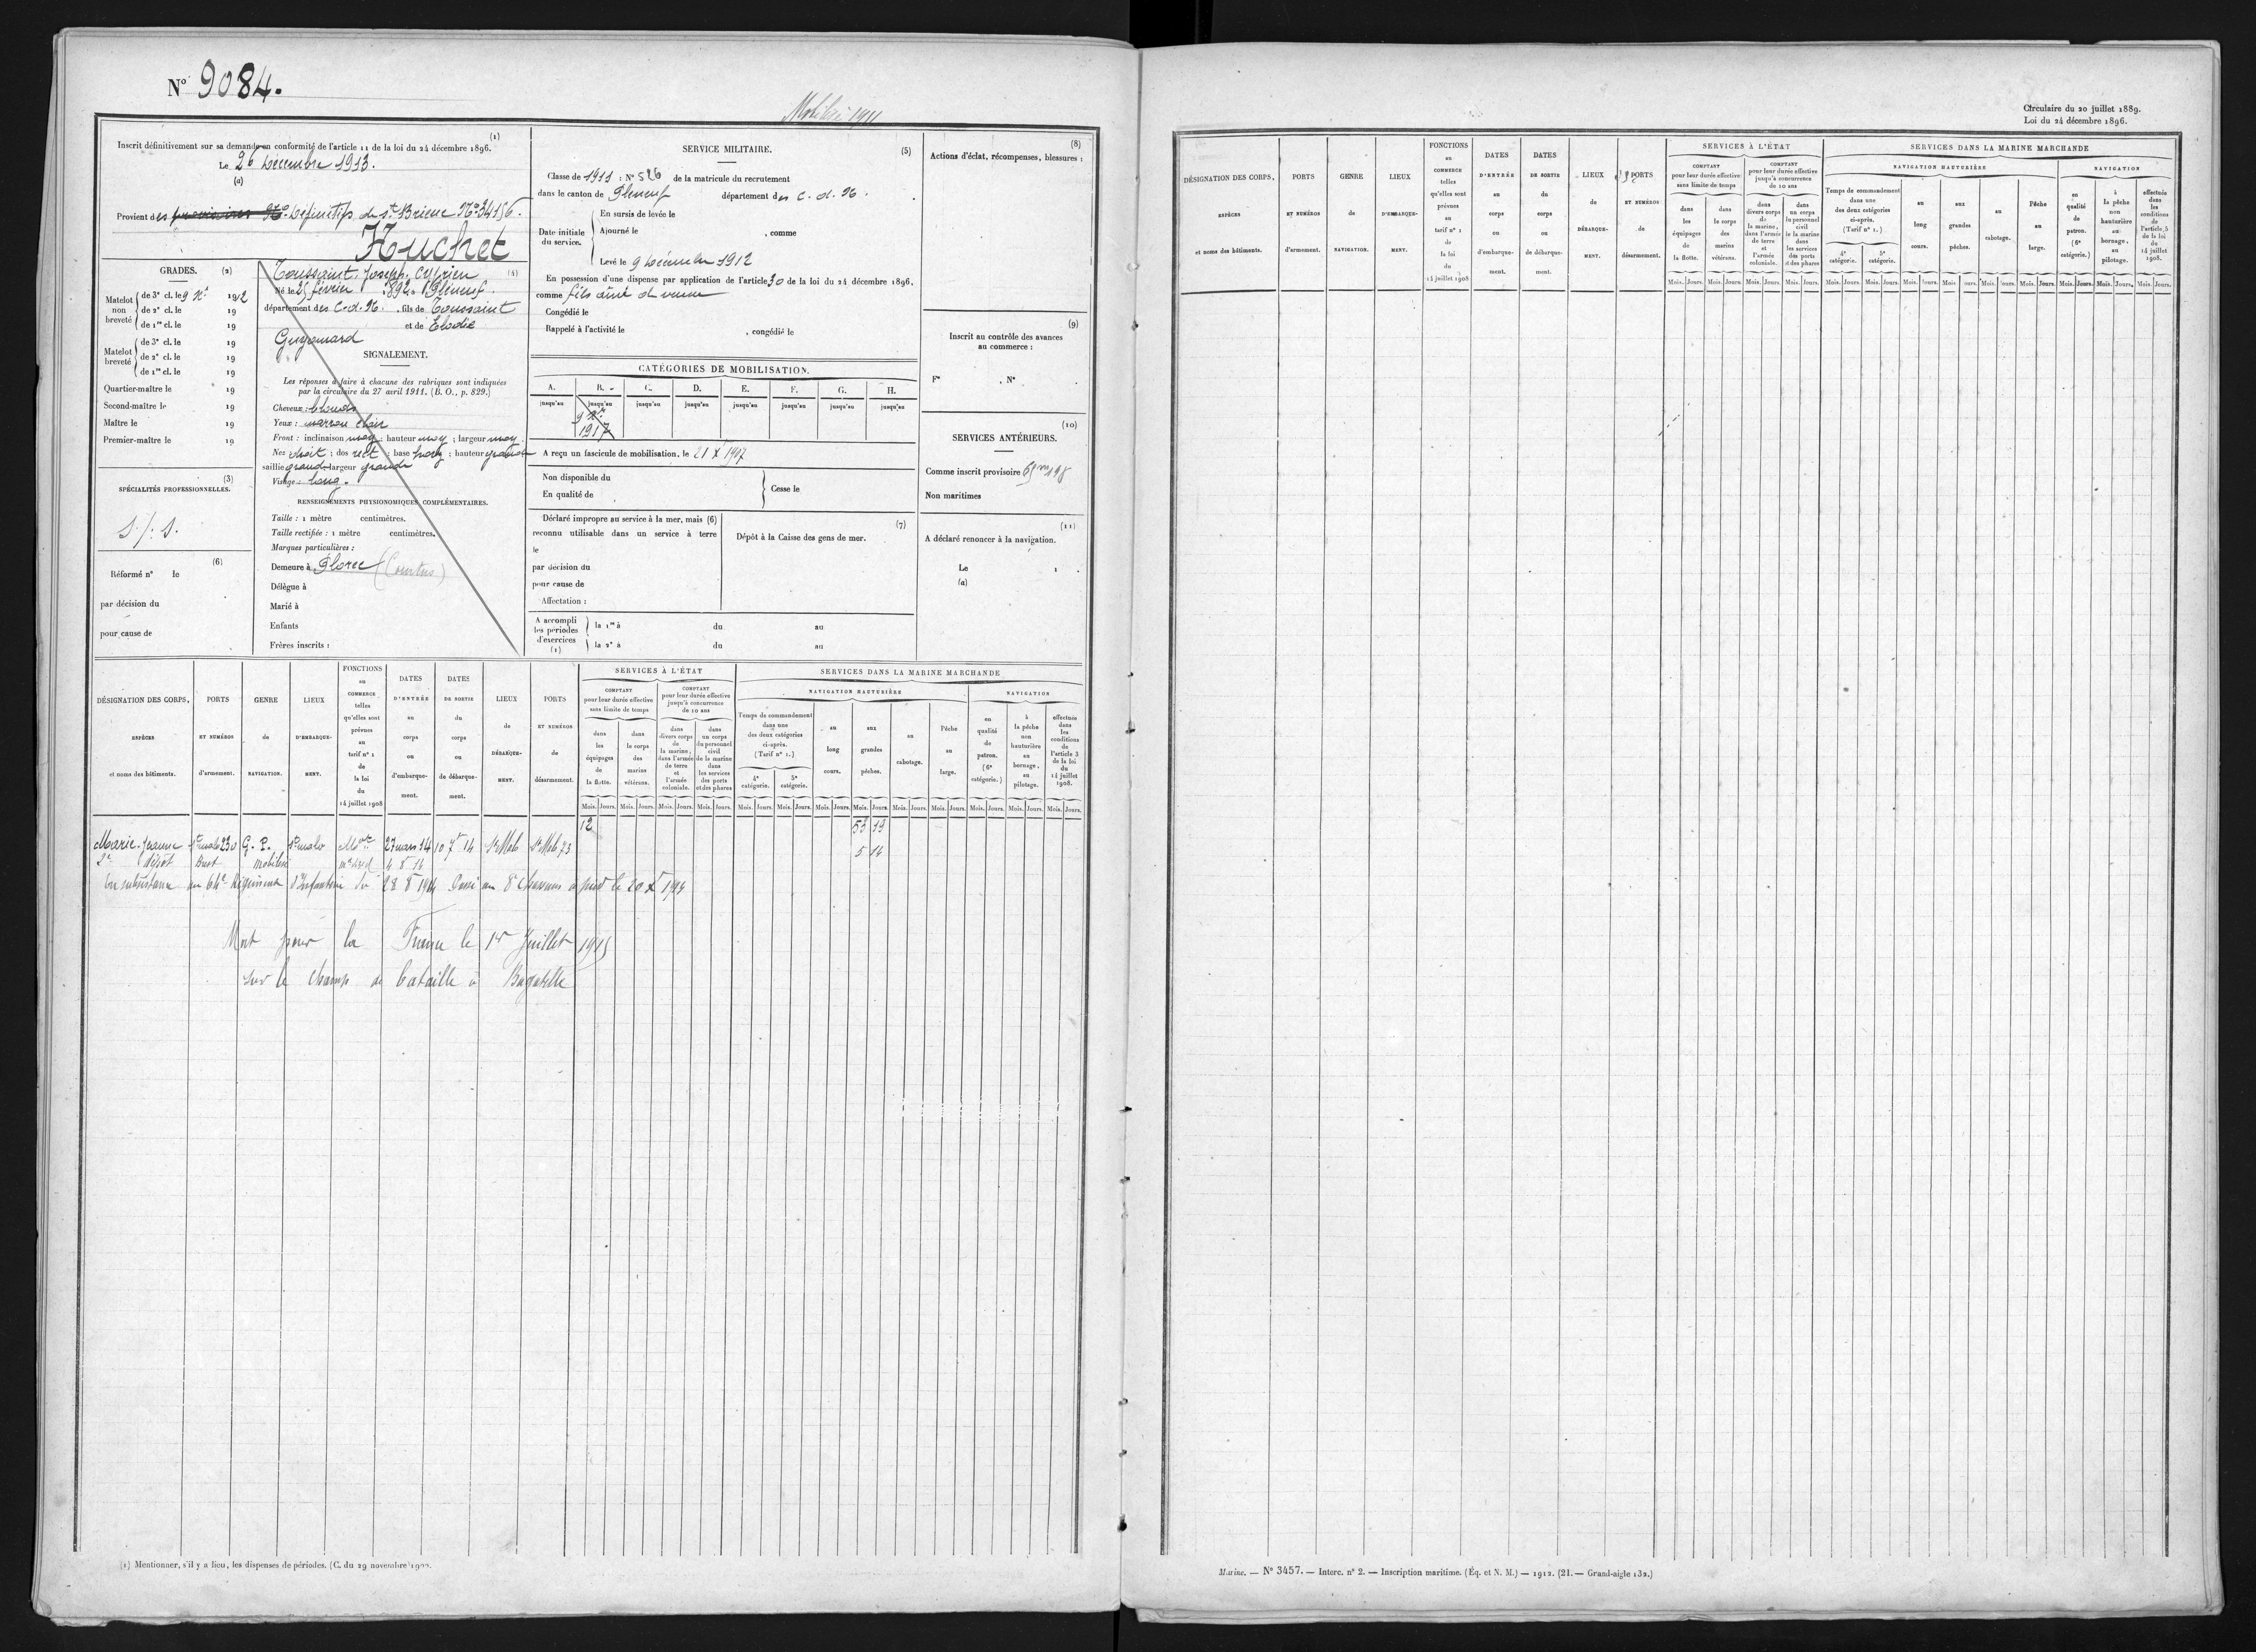 N° 9084.
Mobilisé 1911
(1)
Inscrit définitivement sur sa demande en conformité de l'article 11 de la loi du 24 décembre 1896.
Le 26 Décembre 1913.
(a)
Provient des provisoires N° Définitifs de St Brieuc N° 34156.
Huchet
GRADES. (2)
Matelot non breveté
de 3e cl. le 9 Xbre 1912
de 2e cl. le 19
de 1re cl. le 19
Matelot breveté
de 3e cl. le 19
de 2e cl. le 19
de 1re cl. le 19
Quartier-maître le 19
Second-maître le 19
Maître le 19
Premier-maître le 19
(3)
SPÉCIALITÉS PROFESSIONNELLES.
S/: S.
(6)
Réformé n° le
par décision du
pour cause de
Toussaint, Joseph, Cyprien (4)
Né le 25 février 1892 à Pléneuf.
département des C.-d.-N. , fils de Toussaint
et de Elodie
Guyomard
SIGNALEMENT.
Les réponses à faire à chacune des rubriques sont indiquées
par la circulaire du 27 avril 1911. (B. O., p. 829.)
Cheveux : blonds
Yeux : marron clair
Front : inclinaison moy ; hauteur moy ; largeur moy.
Nez droit ; dos rect ; base horiz ; hauteur grande
saillie grande largeur grande
Visage : long.
RENSEIGNEMENTS PHYSIONOMIQUES COMPLÉMENTAIRES.
Taille : 1 mètre centimètres.
Taille rectifiée : 1 mètre centimètres.
Marques particulières :
Demeure à Plorec
Délègue à
Marié à
Enfants
Frères inscrits :
SERVICE MILITAIRE. (5)
Classe de 1911 : N° 526 de la matricule du recrutement
dans le canton de Pléneuf département des C.-d.-N.
Date initiale du service.
En sursis de levée le
Ajourné le , comme
Levé le 9 Décembre 1912
En possession d'une dispense par application de l'article 30 de la loi du 24 décembre 1896.
comme fils aîné de veuve
Congédié le
Rappelé à l'activité le , congédié le
CATÉGORIES DE MOBILISATION.
A. B. C. D. E. F. G. H.
jusqu'au jusqu'au jusqu'au jusqu'au jusqu'au jusqu'au jusqu'au jusqu'au
9 Xbre
1917
A reçu un fascicule de mobilisation, le 21 X 1907
Non disponible du
En qualité de
Cesse le
Déclaré impropre au service à la mer, mais (6)
reconnu utilisable dans un service à terre
le
par décision du
pour cause de
Affectation :
(7)
Dépôt à la Caisse des gens de mer.
A accompli les périodes d'exercices (1)
la 1re à du au
la 2e à du au
(8)
Actions d'éclat, récompenses, blessures :
(9)
Inscrit au contrôle des avances
au commerce :
F° , N° .
(10)
SERVICES ANTÉRIEURS.
Comme inscrit provisoire
Non maritimes
(11)
A déclaré renoncer à la navigation.
Le
(a)
DÉSIGNATION DES CORPS, ESPÈCES et noms des bâtiments.
PORTS ET NUMÉROS d'armement.
GENRE de NAVIGATION.
LIEUX D'EMBARQUEMENT.
FONCTIONS au COMMERCE telles qu'elles sont prévues au tarif n° 1 de la loi du 14 juillet 1908
DATES D'ENTRÉE au corps ou d'embarquement.
DATES DE SORTIE du corps ou de débarquement.
LIEUX de DÉBARQUEMENT.
PORTS ET NUMÉROS de désarmement.
SERVICES À L'ÉTAT
COMPTANT pour leur durée effective sans limite de temps
dans les équipages de la flotte.
dans le corps des marins vétérans.
COMPTANT pour leur durée effective jusqu'à concurrence de 10 ans
dans divers corps de la marine, dans l'armée de terre et l'armée coloniale.
dans un corps du personnel civil de la marine dans les services des ports et des phares
SERVICES DANS LA MARINE MARCHANDE
NAVIGATION HAUTURIÈRE
Temps de commandement dans une des deux catégories ci-après. (Tarif n° 1.)
4e catégorie.
5e catégorie.
au long cours.
aux grandes pêches.
au cabotage.
Pêche au large.
NAVIGATION
en qualité de patron. (6e catégorie.)
à la pêche non hauturière au bornage, au pilotage.
effectuée dans les conditions de l'article 3 de la loi du 14 juillet 1908.
Mois. Jours. Mois. Jours. Mois. Jours. Mois. Jours. Mois. Jours. Mois. Jours. Mois. Jours. Mois. Jours. Mois. Jours. Mois. Jours. Mois. Jours. Mois. Jours. Mois. Jours.
12 53 19
Marie-Jeanne St Malo 230 G. P. St Malo 27 mars 14 10 7bre 14 St Malo St Malo 73 5 14
2e dépôt Brest mobilisé 4 8 14
En subsistance au 64e Régiment d'Infanterie du 28 8 1914 Passé au 8e Chasseurs à pied le 20 X 1914
Mort pour la France le 1er Juillet 1915
sur le champ de bataille à Bagatelle
(1) Mentionner, s'il y a lieu, les dispenses de périodes. (C. du 29 novembre 1902.
Circulaire du 20 juillet 1889.
Loi du 24 décembre 1896.
DÉSIGNATION DES CORPS, ESPÈCES et noms des bâtiments.
PORTS ET NUMÉROS d'armement.
GENRE de NAVIGATION.
LIEUX D'EMBARQUEMENT.
FONCTIONS au COMMERCE telles qu'elles sont prévues au tarif n° 1 de la loi du 14 juillet 1908
DATES D'ENTRÉE au corps ou d'embarquement.
DATES DE SORTIE du corps ou de débarquement.
LIEUX de DÉBARQUEMENT.
PORTS ET NUMÉROS de désarmement.
SERVICES À L'ÉTAT
COMPTANT pour leur durée effective sans limite de temps
dans les équipages de la flotte.
dans le corps des marins vétérans.
COMPTANT pour leur durée effective jusqu'à concurrence de 10 ans
dans divers corps de la marine, dans l'armée de terre et l'armée coloniale.
dans un corps du personnel civil de la marine dans les services des ports et des phares
SERVICES DANS LA MARINE MARCHANDE
NAVIGATION HAUTURIÈRE
Temps de commandement dans une des deux catégories ci-après. (Tarif n° 1.)
4e catégorie.
5e catégorie.
au long cours.
aux grandes pêches.
au cabotage.
Pêche au large.
NAVIGATION
en qualité de patron. (6e catégorie.)
à la pêche non hauturière au bornage, au pilotage.
effectuée dans les conditions de l'article 3 de la loi du 14 juillet 1908.
Mois. Jours. Mois. Jours. Mois. Jours. Mois. Jours. Mois. Jours. Mois. Jours. Mois. Jours. Mois. Jours. Mois. Jours. Mois. Jours. Mois. Jours. Mois. Jours. Mois. Jours.
Marine. — N° 3457. — Interc. n° 2. — Inscription maritime. (Éq. et N. M.) — 1912. (21. — Grand-aigle 132.)